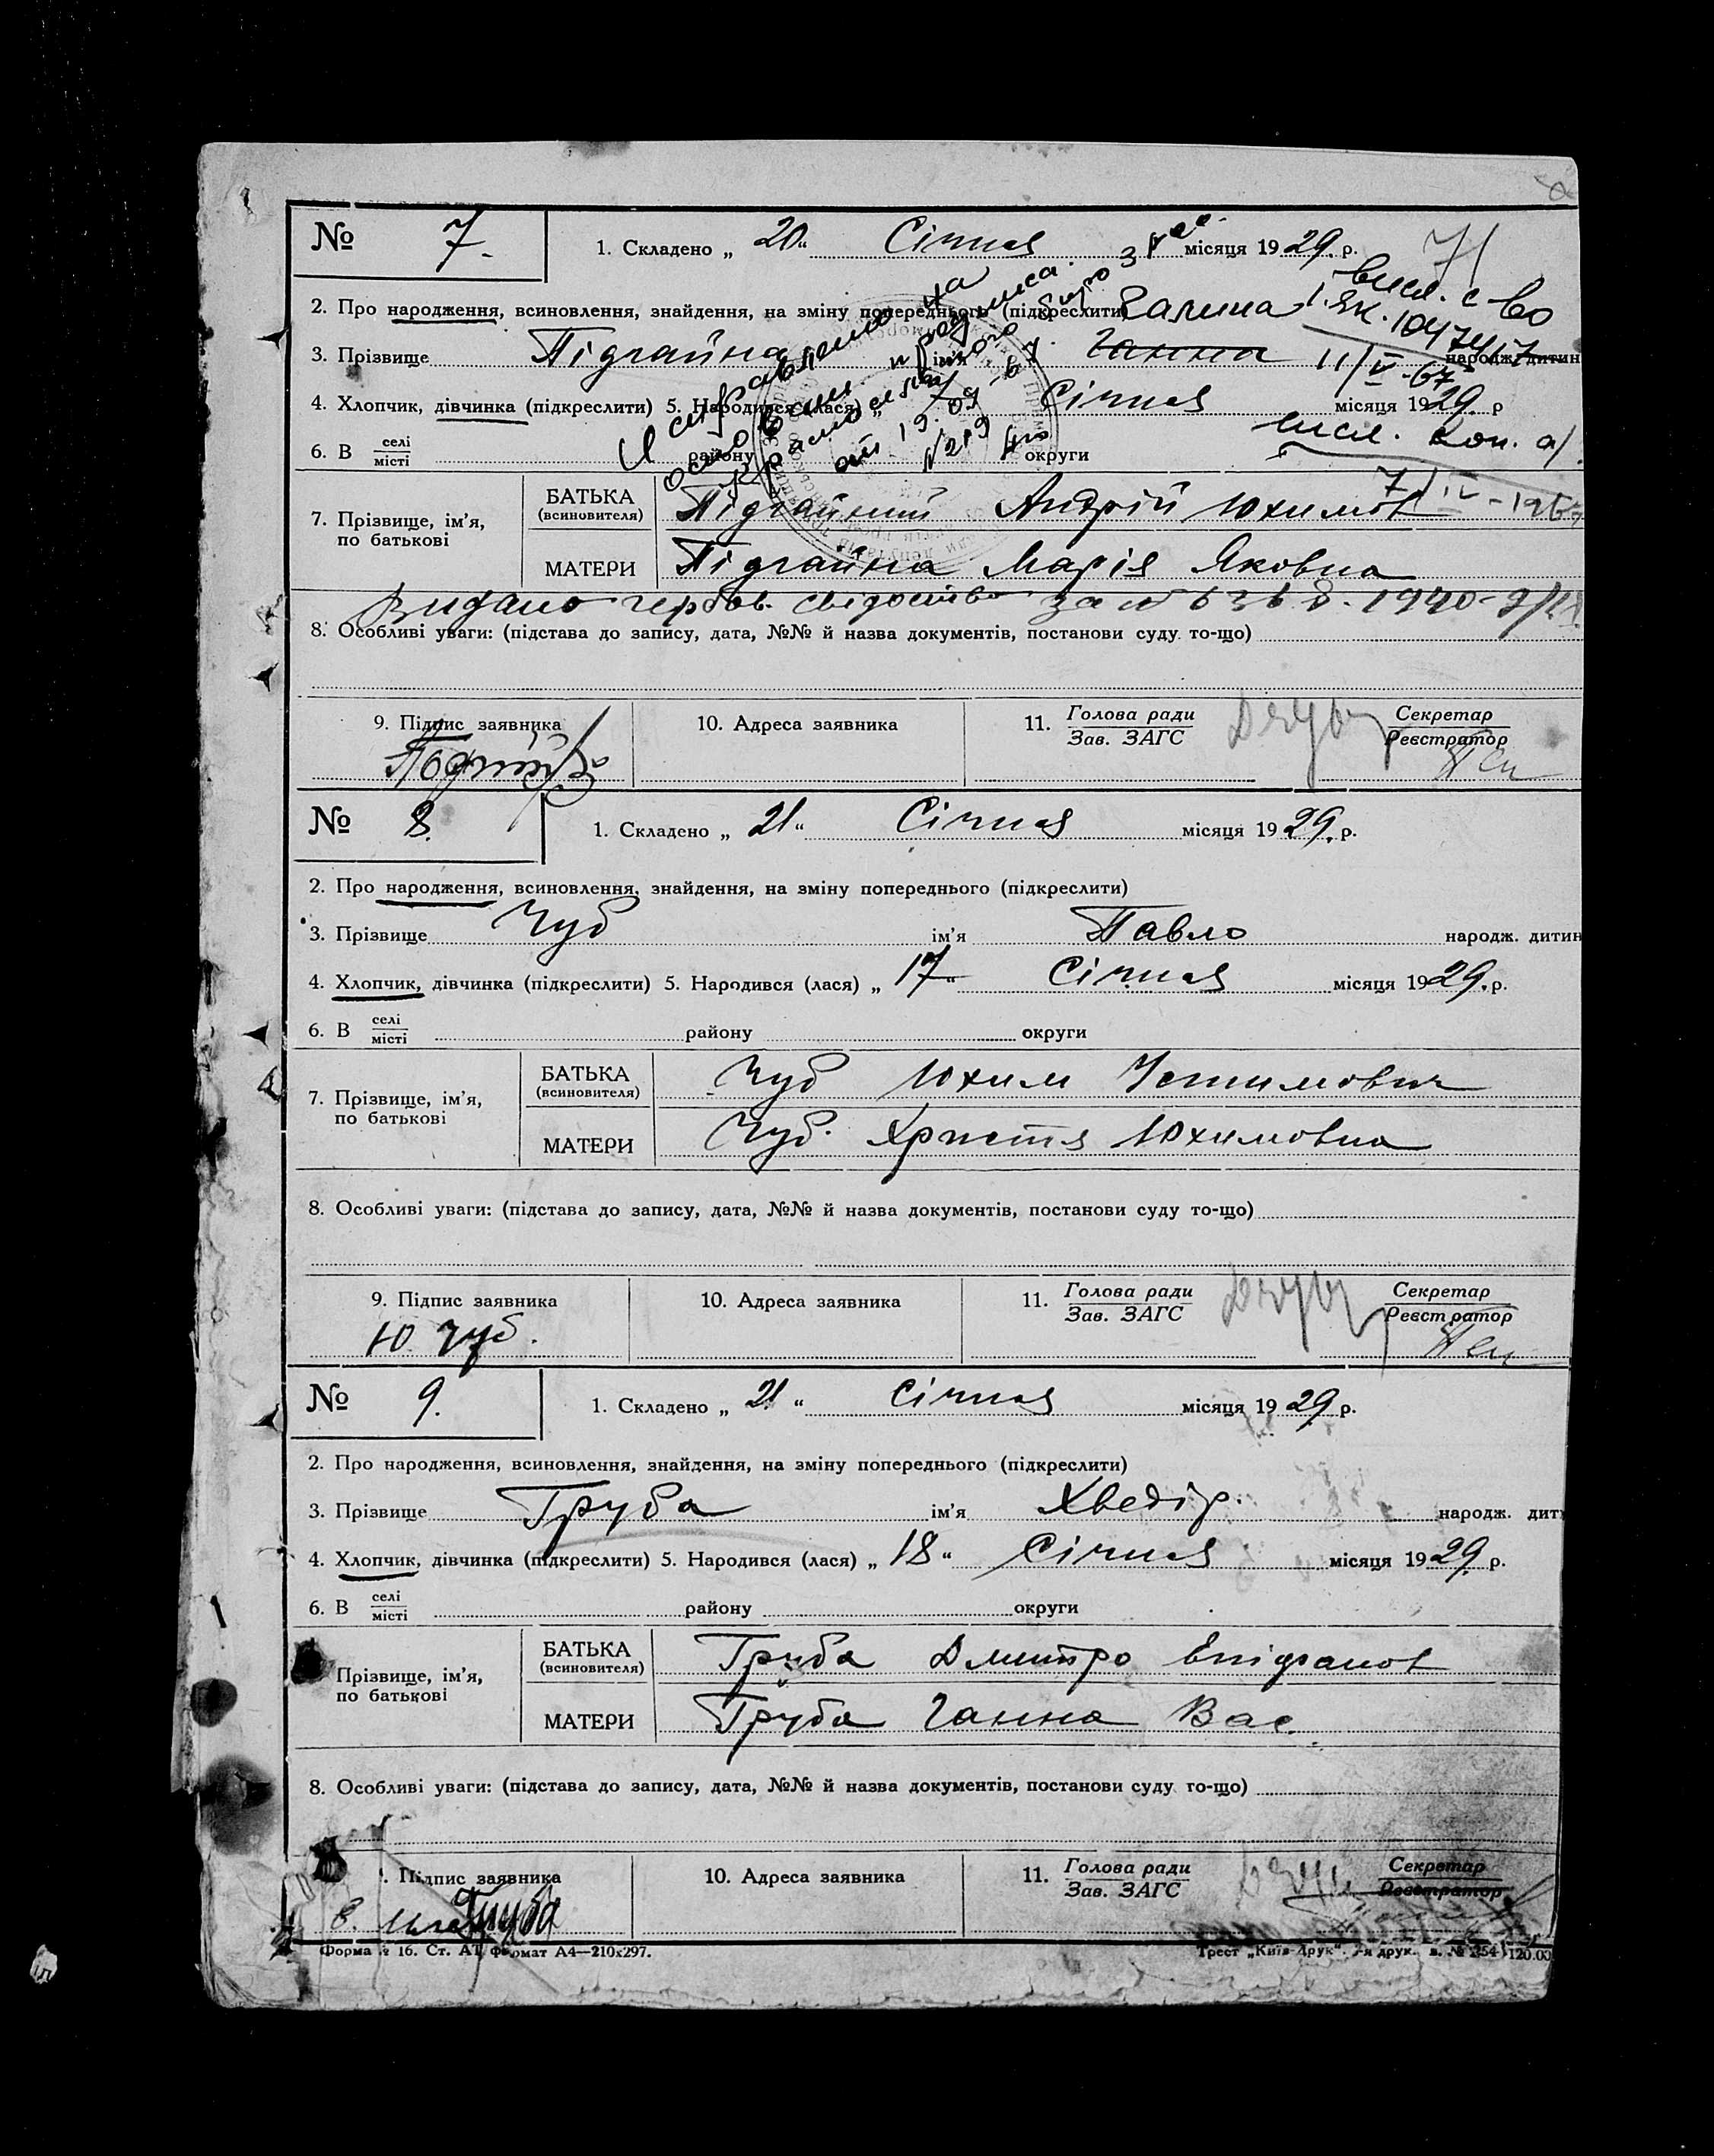 № 7. 1. Складено „ 20 “ Січня місяця 1929. р.
2. Про народження, всиновлення, знайдення, на зміну попереднього (підкреслити) Галина
3. Прізвище Підгайна ім'я Ганна народж. дитин
4. Хлопчик, дівчинка (підкреслити) 5. Народився (лася) „ Січня місяця 1929. р
6. В селі/місті району округи
Исправлено на
основании
от 19. 09 67
№ 219
висл. с-во
11/V-67
висл. коп. а/
7/IV-1967
7. Прізвище, ім'я, по батькові
БАТЬКА (всиновителя) Підгайний Андрій Юхимов
МАТЕРИ Підгайна Марія Яковна
Видано гербов. свідоцтво за № 1940
8. Особливі уваги: (підстава до запису, дата, №№ й назва документів, постанови суду то-що)
9. Підпис заявника 10. Адреса заявника 11. Голова ради/Зав. ЗАГС Секретар/Реєстратор
№ 8. 1. Складено „ 21 “ Січня місяця 1929. р.
2. Про народження, всиновлення, знайдення, на зміну попереднього (підкреслити)
3. Прізвище Чуб ім'я Павло народж. дитин
4. Хлопчик, дівчинка (підкреслити) 5. Народився (лася) „ 17 “ Січня місяця 1929. р.
6. В селі/місті району округи
7. Прізвище, ім'я, по батькові
БАТЬКА (всиновителя) Чуб Юхим Устимович
МАТЕРИ Чуб. Христя Юхимовна
8. Особливі уваги: (підстава до запису, дата, №№ й назва документів, постанови суду то-що)
9. Підпис заявника 10. Адреса заявника 11. Голова ради/Зав. ЗАГС Секретар/Реєстратор
Ю. Чуб.
№ 9. 1. Складено „ 21 “ Січня місяця 1929. р.
2. Про народження, всиновлення, знайдення, на зміну попереднього (підкреслити)
3. Прізвище Труба ім'я Хведір. народж. дит
4. Хлопчик, дівчинка (підкреслити) 5. Народився (лася) „ 18 “ Січня місяця 1929. р.
6. В селі/місті району округи
Прізвище, ім'я, по батькові
БАТЬКА (всиновителя) Труба Дмитро
МАТЕРИ Труба Ганна Вас.
8. Особливі уваги: (підстава до запису, дата, №№ й назва документів, постанови суду то-що)
Підпис заявника 10. Адреса заявника 11. Голова ради/Зав. ЗАГС Секретар/Реєстратор
Труба
Форма № 16. Ст. АТ, Формат А4—210х297. Трест „Київ-Друк“. друк. 120.00